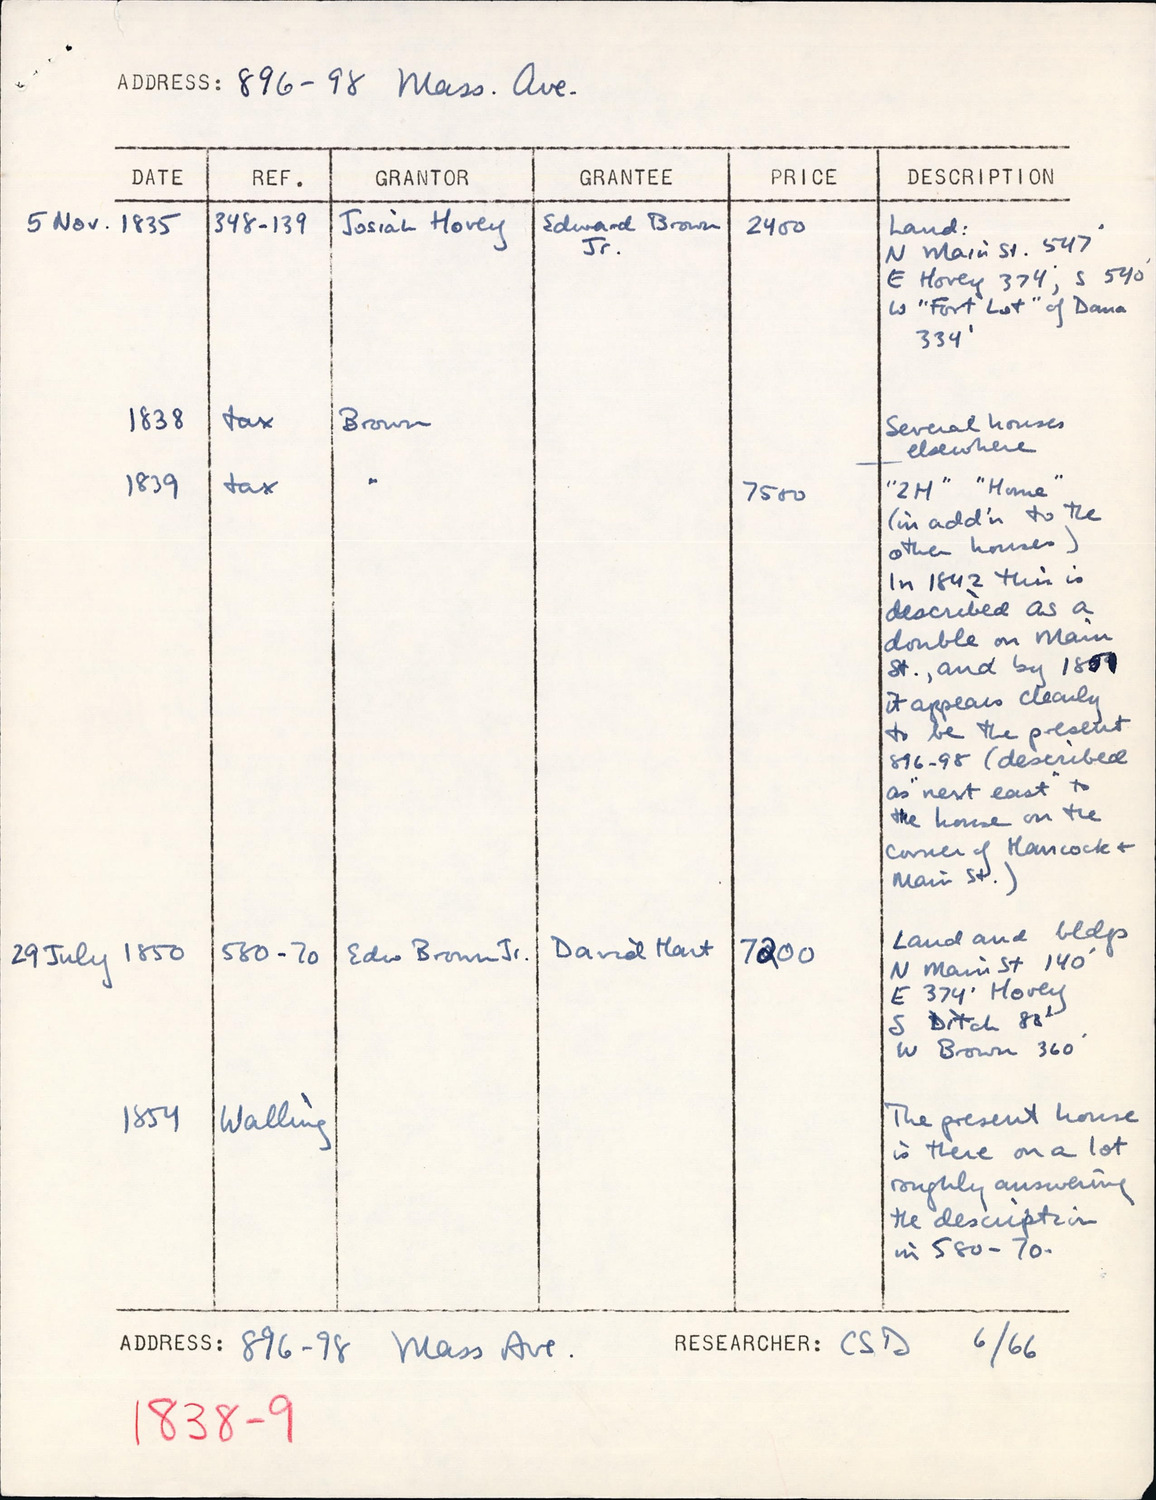 ADDRESS: 896-98 Mass. Ave.
DATE REF. GRANTOR GRANTEE PRICE DESCRIPTION
5 Nov. 1835 348-139 Josiah Hovey Edward Brown 2400 Land:
Jr. N Main St. 547'
E Hovey 374', S 540'
W "Fort Lot" of Dana
334'
1838 tax Brown Several houses
elsewhere
1839 tax " 7500 "2H" "Home"
(in add'n to the
other houses)
In 1842 this is
described as a
double on Main
St., and by 18
it appears clearly
to be the present
896-98 (described
as "next east" to
the house on the
corner of Hancock +
Main St.)
29 July 1850 580-70 Edw Brown Jr. David Hart 7200 Land and bldgs
N Main St 140'
E 374' Hovey
S Ditch 88'
W Brown 360'
1854 Walling The present house
is there on a lot
roughly answering
the description
in 580-70.
ADDRESS: 896-98 Mass Ave. RESEARCHER: CSD 6/66
1838-9